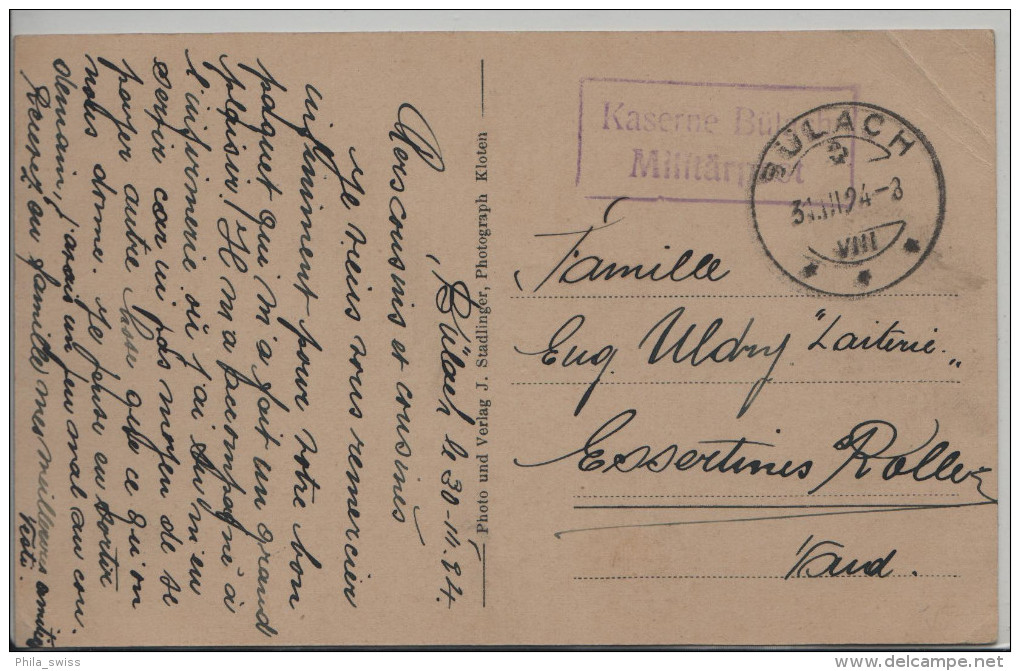 Bülach le 30-III.24.
Chers cousins et cousines
Je viens vous remercier
infiniment pour votre bon
paquet qui m'a fait un grand
plaisir. Il m'a accompagné à
l'infirmerie où j'ai dû m'en
servir car ici pas moyen de se
payer autre chose que ce qu'on
nous donne. Je pense en sortir
demain, j'avais un peu mal au cou.
Recevez en famille mes meilleures amitiés
Photo und Verlag J. Stadlinger, Photograph Kloten
Kaserne Bülach
Militärpost
BÜLACH
31.III.24-8
VIII
Famille
Eug Uldry "Laiterie"
Essertines s/ Rolle
Vaud.
Phila_swiss
delcampe.net